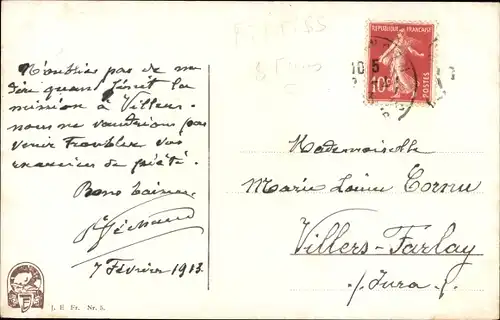 N'oubliez pas de me
dire quand finit la
mission à Villers.
nous ne voudrions pas
venir troubler vos
exercices de piété.
Bons baisers
7 Février 1913.
REPUBLIQUE FRANÇAISE
10c
POSTES
Mademoiselle
Marie Louise Cornu
Villers-Farlay
Jura
J. E Fr. Nr. 5.